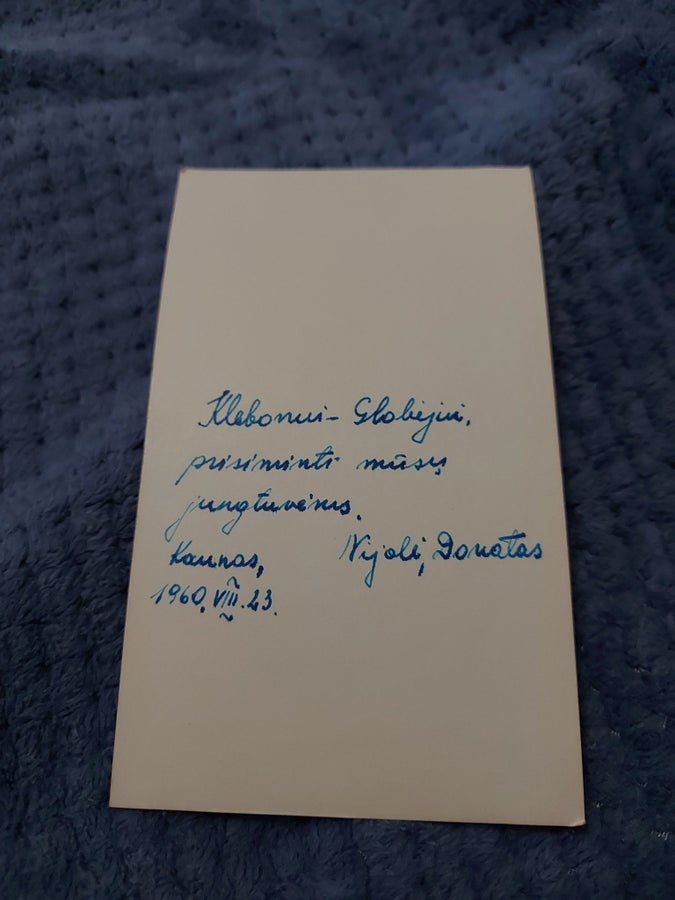 Klebonui-Globėjui,
prisiminti mūsų
jungtuvėms.
Kaunas, Nijolė, Donatas
1960.VIII.23.